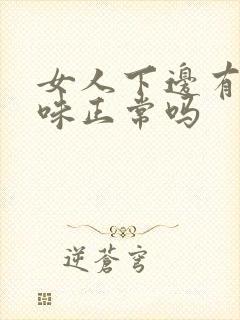 女人下邊有
味正常吗
逆蒼穹